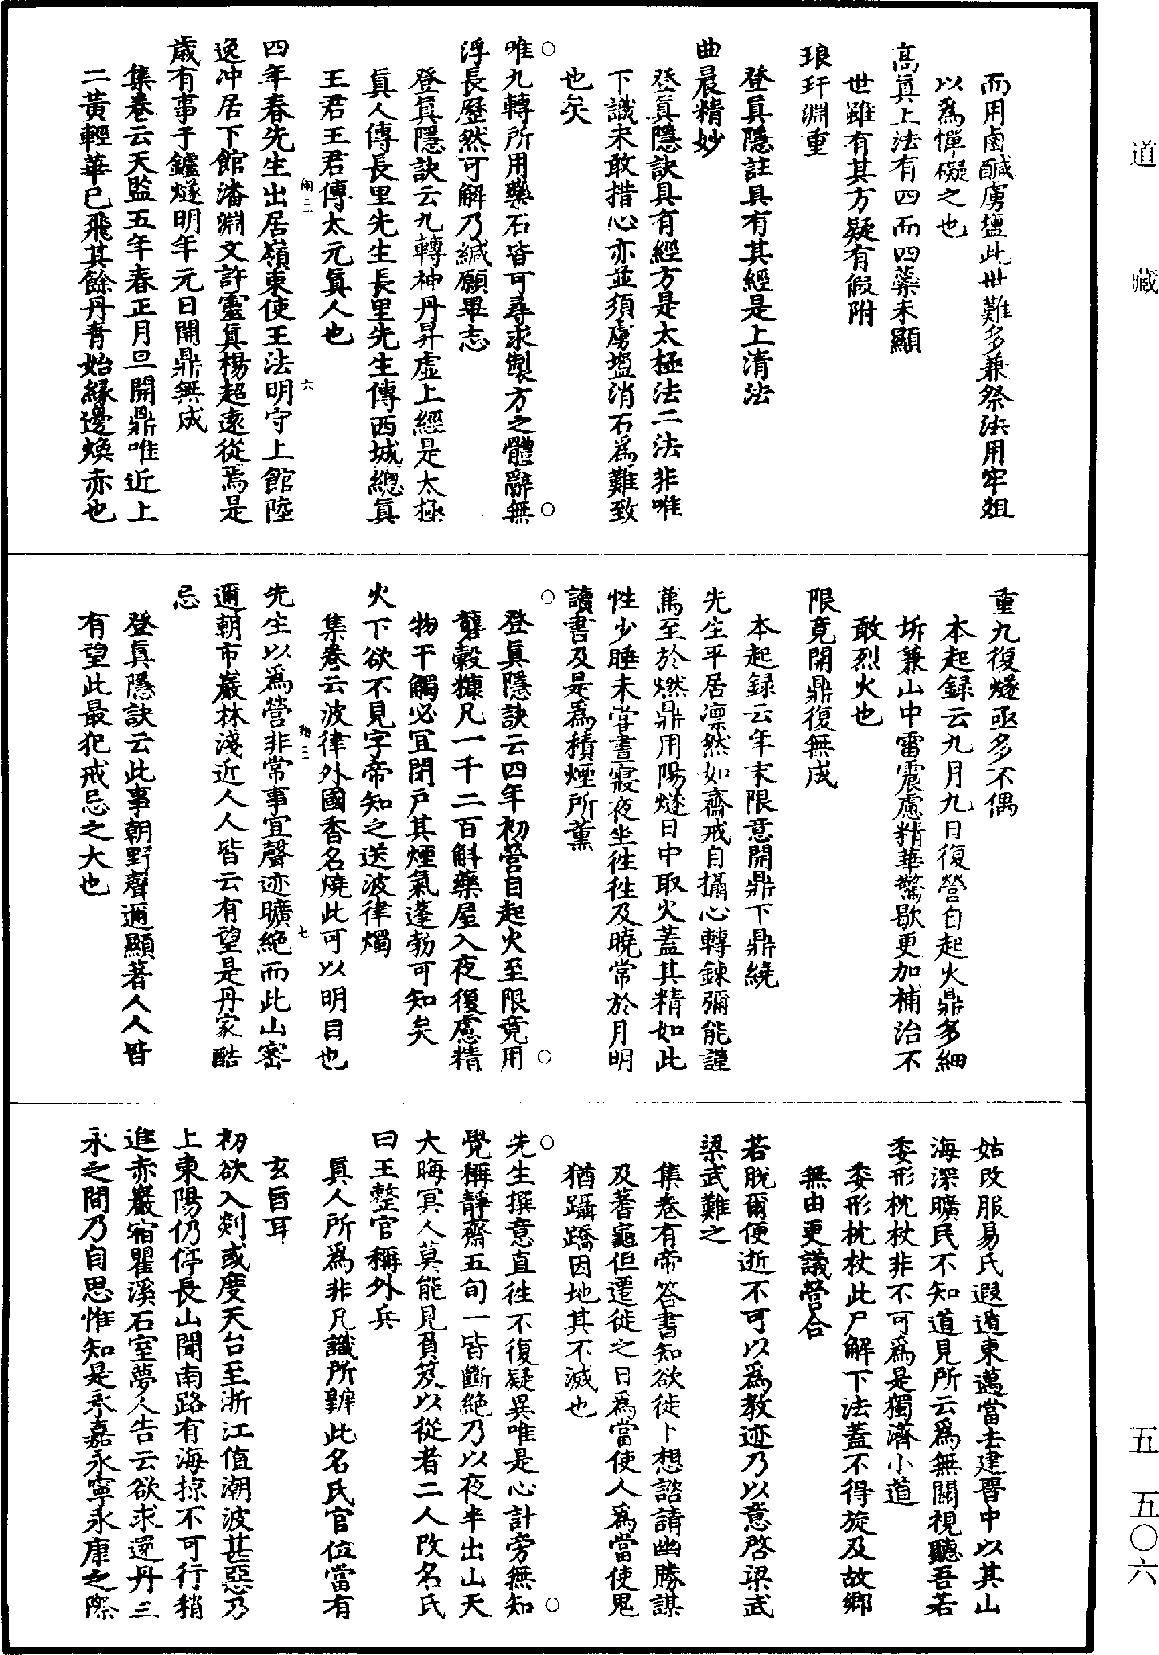 道藏
五 五〇六
而用鹵鹹虜塩此世難多兼祭法用牢俎
以為憚礙之也
高真上法有四而四藥未顯
世雖有其方疑有假附
琅玕淵重
登真隱註具有其經是上清法
曲晨精妙
登真隱訣具有經方是太極法二法非唯
下識未敢措心亦並須虜塩消石為難致
也矣
唯九轉所用藥石皆可尋求製方之體辭無
浮長歷然可解乃緘願畢志
登真隱訣云九轉神丹昇虛上經是太極
真人傳長里先生長里先生傳西城總真
王君王君傳太元真人也
四年春先生出居嶺東使王法明守上館陸
逸沖居下館潘淵文許靈真楊超遠從焉是
歲有事于鑪燧明年元日開鼎無成
集卷云天監五年春正月旦開鼎唯近上
二黃輕華已飛其餘丹青始緣邊煥亦也
重九復燧亟多不偶
本起録云九月九日復營自起火鼎多細
坼兼山中雷震慮精華驚歇更加補治不
敢烈火也
限竟開鼎復無成
本起録云年末限意開鼎下鼎繞
先生平居凛然如齋戒自攝心轉鍊彌能謹
篤至於燃鼎用陽燧日中取火蓋其精如此
性少睡未嘗晝寢夜坐徃徃及曉常於月明
讀書及是為積煙所薰
登真隱訣云四年初營自起火至限竟用
糓糠凡一千二百斛藥屋入夜復慮精
物干觸必宜閉戶其煙氣蓬勃可知矣
火下欲不見字帝知之送波律燭
集卷云波律外國香名燒此可以明目也
先生以為營非常事宜聲迹曠絕而此山密
邇朝市巖林淺近人人皆云有望是丹家酷
忌
登真隱訣云此事朝野聲邇顯著人人皆
有望此最犯戒忌之大也
姑改服易氏遐遁東邁當去建晉中以其山
海深曠民不知道見所云為無關視聽吾若
委形枕杖非不可為是獨濟小道
委形枕杖此尸解下法蓋不得旋及故鄉
無由更議營合
若脫爾便逝不可以為教迹乃以意啓梁武
梁武難之
集卷有帝答書知欲徒卜想諮請幽勝謀
及蓍龜但遷徙之日為當使人為當使鬼
猶躡蹻因地其不滅也
先生撰意直徃不復疑異唯是心計旁無知
覺稱靜齋五旬一皆斷絕乃以夜半出山天
大晦冥人莫能見負笈以從者二人改名氏
曰王整官稱外兵
真人所為非凡識所辯此名氏官位當有
玄旨耳
初欲入剡或度天台至浙江值潮波甚惡乃
上東陽仍停長山聞南路有海掠不可行稍
進赤巖宿瞿溪石室夢人告云欲求還丹三
永之間乃自思惟知是永嘉永寧永康之際